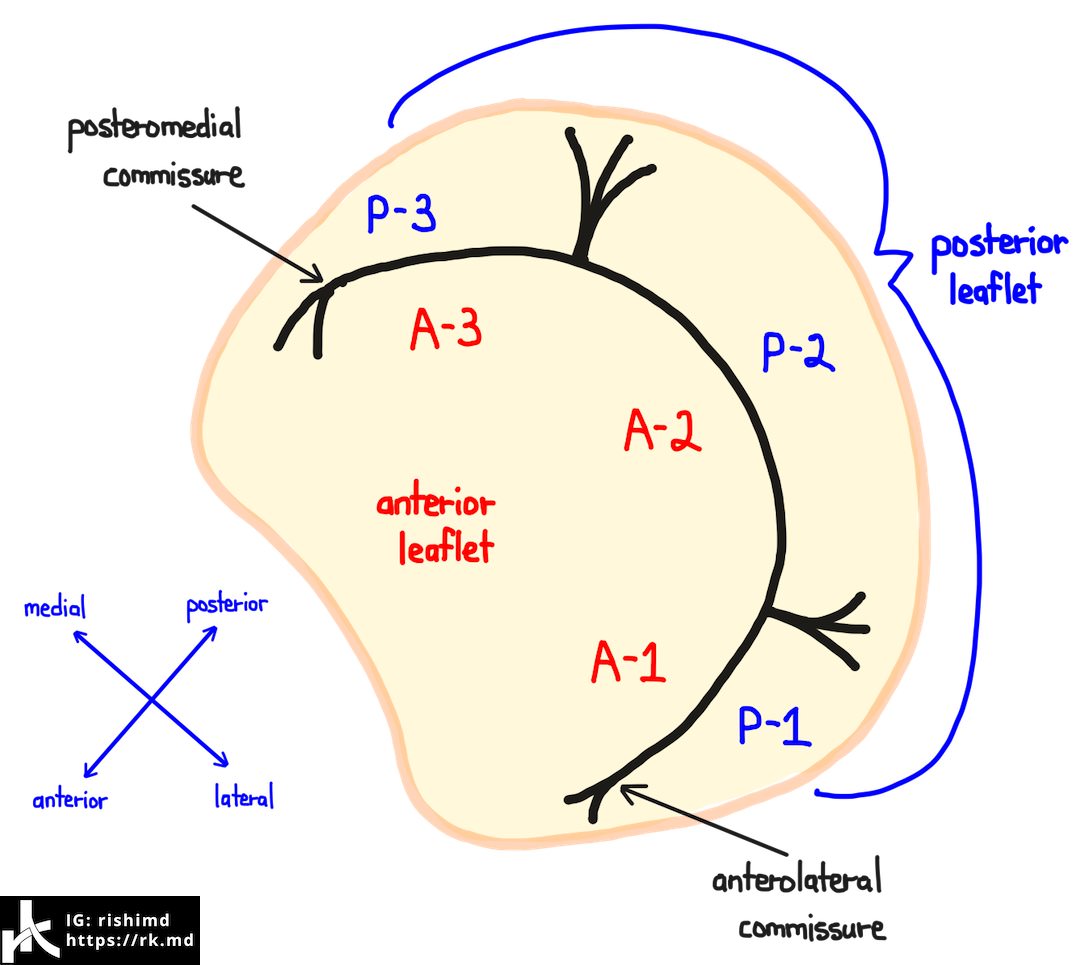 posteromedial
commissure
P-3
A-3
P-2
posterior
leaflet
A-2
anterior
leaflet
medial
posterior
anterior
lateral
A-1
P-1
anterolateral
commissure
IG: rishimd
https://rk.md